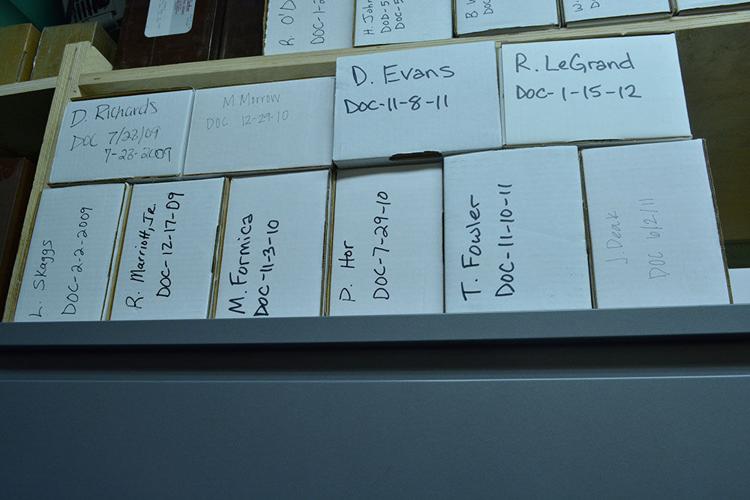 R. O'D
DOC-1-2
H. John
DOD-5
DOC-5
B W
DOC
DOC
D. Richards
DOC 7/28/09
7-28-2009
M. Morrow
DOC 12-29-10
D. Evans
DOC-11-8-11
R. LeGrand
DOC-1-15-12
L. Skaggs
DOC-2-2-2009
R. Marriott, Jr.
DOC-12-17-09
M. Formica
DOC-11-3-10
P. Hor
DOC-7-29-10
T. Fowler
DOC-11-10-11
J Deak
DOC 6/2/11